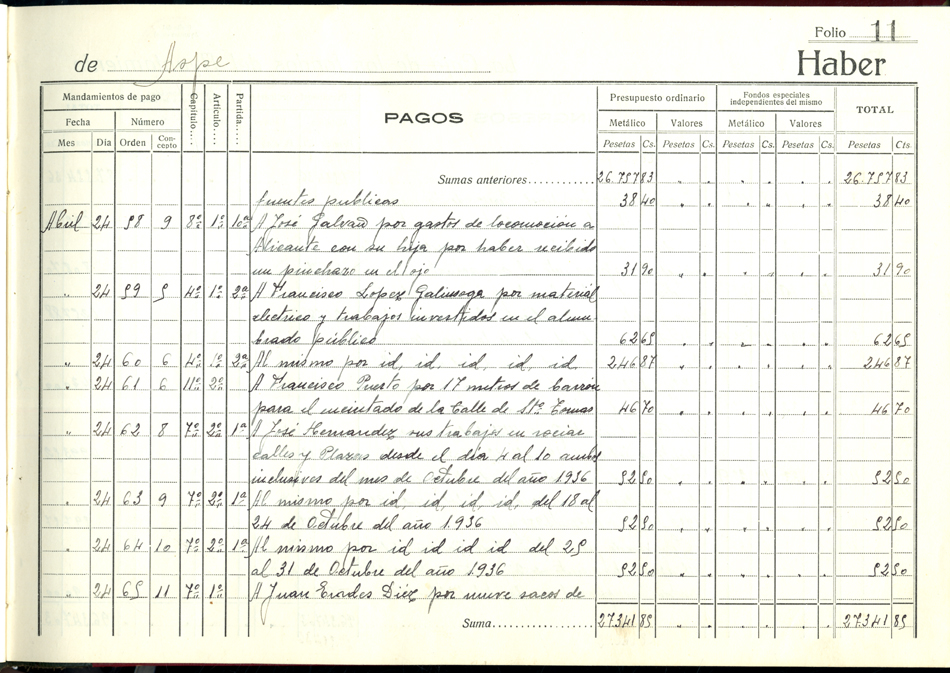 Folio 11
de Aspe Haber
Mandamientos de pago Capítulo.... Artículo.... Partida.... PAGOS Presupuesto ordinario Fondos especiales independientes del mismo TOTAL
Fecha Número Metálico Valores Metálico Valores
Mes Día Orden Concepto Pesetas Cs. Pesetas Cs. Pesetas Cs. Pesetas Cs. Pesetas Cts.
Sumas anteriores............ 26.757 83 " " " " " " 26.757 83
fuentes publicas 38 40 " " " " " " 38 40
Abril 24 58 9 8º 1º 10ª A José Galvañ por gastos de locomoción a
Alicante con su hija por haber recibido
un pinchazo en el ojo 31 90 " " " " " " 31 90
" 24 59 5 4º 1º 2ª A Francisco Lopez Galinsoga por material
electrico y trabajos investidos en el alum-
brado publico 62 65 " " " " " " 62 65
" 24 60 6 4º 1º 2ª Al mismo por id, id, id, id, id. 246 87 " " " " " " 246 87
" 24 61 6 11º 2º A Francisco Puesto por 17 metros de
para el encintado de la Calle de Stº Tomas 46 70 " " " " " " 46 70
" 24 62 8 7º 2º 1ª A José Hernandez sus trabajos en rociar
calles y Plazas desde el dia 4 al 10 ambos
inclusives del mes de Octubre del año 1936 52 50 " " " " " " 52 50
" 24 63 9 7º 2º 1ª Al mismo por id, id, id, id, del 18 al
24 de Octubre del año 1.936 52 50 " " " " " " 52 50
" 24 64 10 7º 2º 1ª Al mismo por id id id id del 25
al 31 de Octubre del año 1.936 52 50 " " " " " " 52 50
" 24 65 11 7º 1º A Juan Erades Diez por nueve sacos de
Suma.................. 27.341 85 " " " " " " 27.341 85